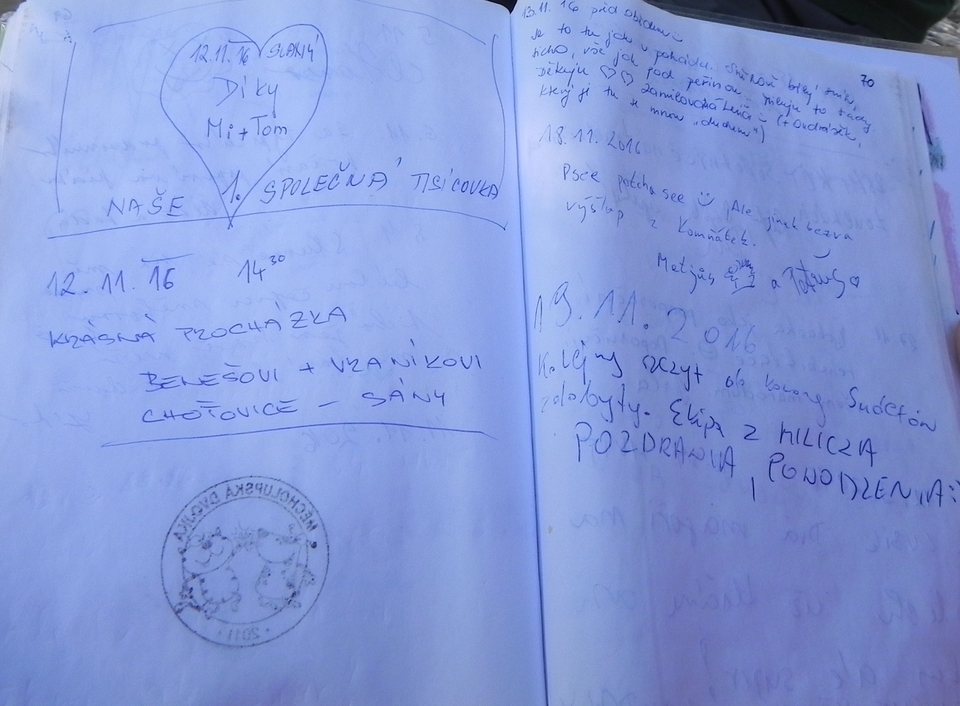 12.11.16 SLANÝ
Díky
Mi + Tom
NAŠE 1. SPOLEČNÁ TISÍCOVKA
12.11.16 14³⁰
KRÁSNÁ PROCHÁZKA
BENEŠOVI + VRANÍKOVI
CHOŤOVICE – SÁNY
MĚCHOLUPSKÁ DVOJKA
• 2011 •
70
13.11.16 před obědem
Je to tu jako v pohádce.
ticho, vše jak pod peřinou – miluju to tady
Děkuju ♡♡
který je tu se mnou „duchem")
18.11.2016
Psce potcha see ☺ Ale jinak bezva
výšlap z Komňátek.
Matijáš a
19.11.2016
Kolejny szczyt do korony Sudetów
zdobyty. Ekipa z MILICZA
POZDRAWIA, POWODZENIA :)